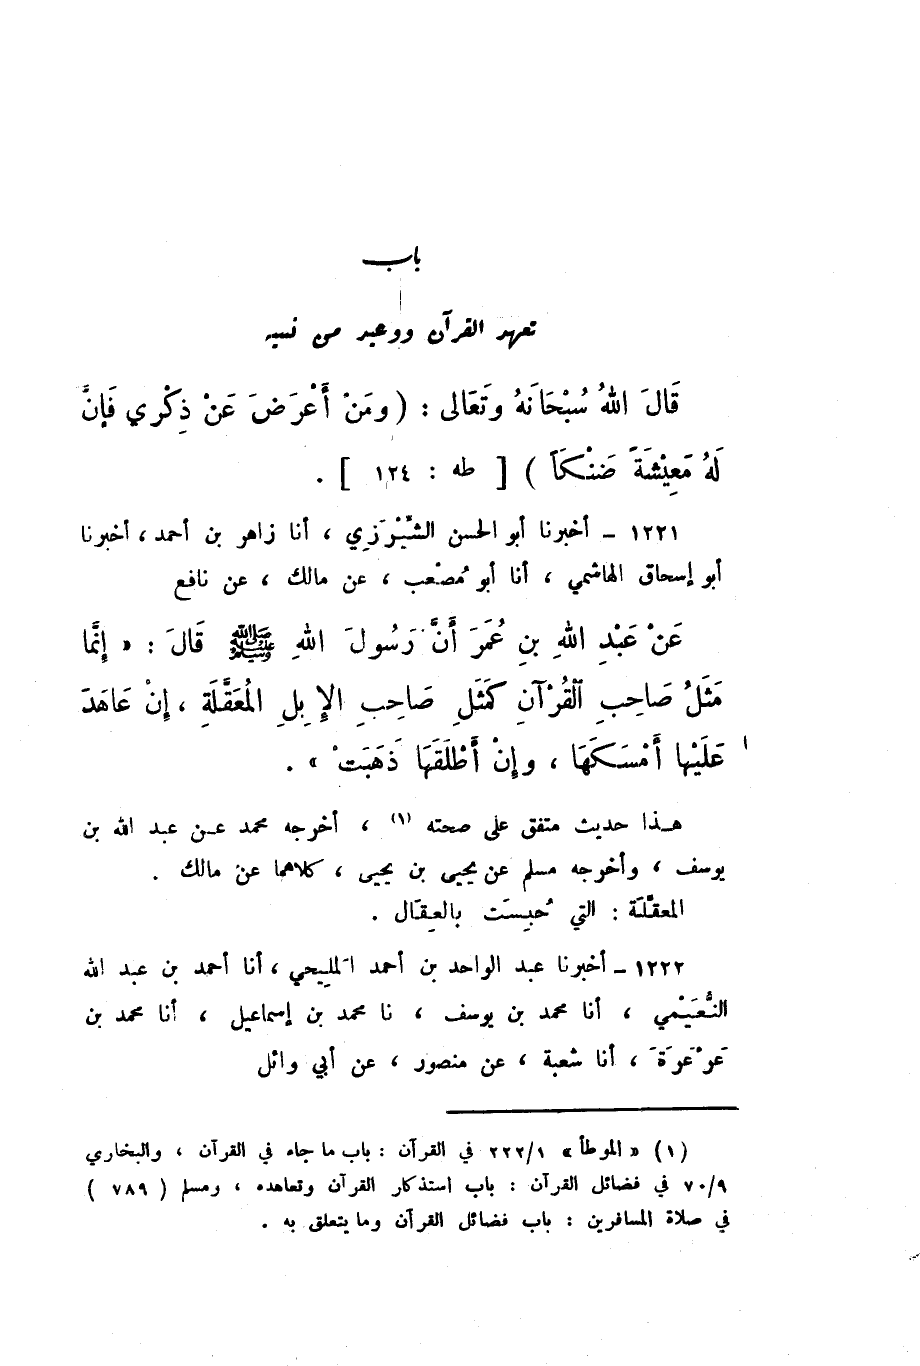 باب
تعهد القرآن ووعيد من نسيه
قَالَ اللهُ سُبْحَانَهُ وتَعَالى : ( ومَنْ أَعْرَضَ عَنْ ذِكْرِي فَإِنَّ
لَهُ مَعِيْشَةً ضَنْكاً ) [ طه : ١٢٤ ] .
١٢٢١ – أخبرنا أبو الحسن الشِّيْرَزِي ، أنا زاهر بن أحمد ، أخبرنا
أبو إسحاق الهاشمي ، أنا أبو مُصْعب ، عن مالك ، عن نافع
عَنْ عَبْدِ اللهِ بنِ عُمَرَ أَنَّ رَسُولَ اللهِ ﷺ قَالَ : « إِنَّما
مَثَلُ صَاحِبِ الْقُرْآنِ كَمَثَلِ صَاحِبِ الإِبِلِ المُعَقَّلَةِ ، إِنْ عَاهَدَ
عَلَيْها أَمْسَكَهَا ، وإِنْ أَطْلَقَهَا ذَهَبَتْ » .
هذا حديث متفق على صحته (١) ، أخرجه محمد عن عبد الله بن
يوسف ، وأخرجه مسلم عن يحيى بن يحيى ، كلاهما عن مالك .
المعقَّلَة : التي حُبِسَت بالعِقَال .
١٢٢٢ – أخبرنا عبد الواحد بن أحمد المَليحي ، أنا أحمد بن عبد الله
النُّعَيْمي ، أنا محمد بن يوسف ، نا محمد بن إسماعيل ، أنا محمد بن
عَرْعَرَةَ ، أنا شعبة ، عن منصور ، عن أبي وائل
(١) « الموطأ » ٢٢٢/١ في القرآن : باب ما جاء في القرآن ، والبخاري
٧٠/٩ في فضائل القرآن : باب استذكار القرآن وتعاهده ، ومسلم ( ٧٨٩ )
في صلاة المسافرين : باب فضائل القرآن وما يتعلق به .